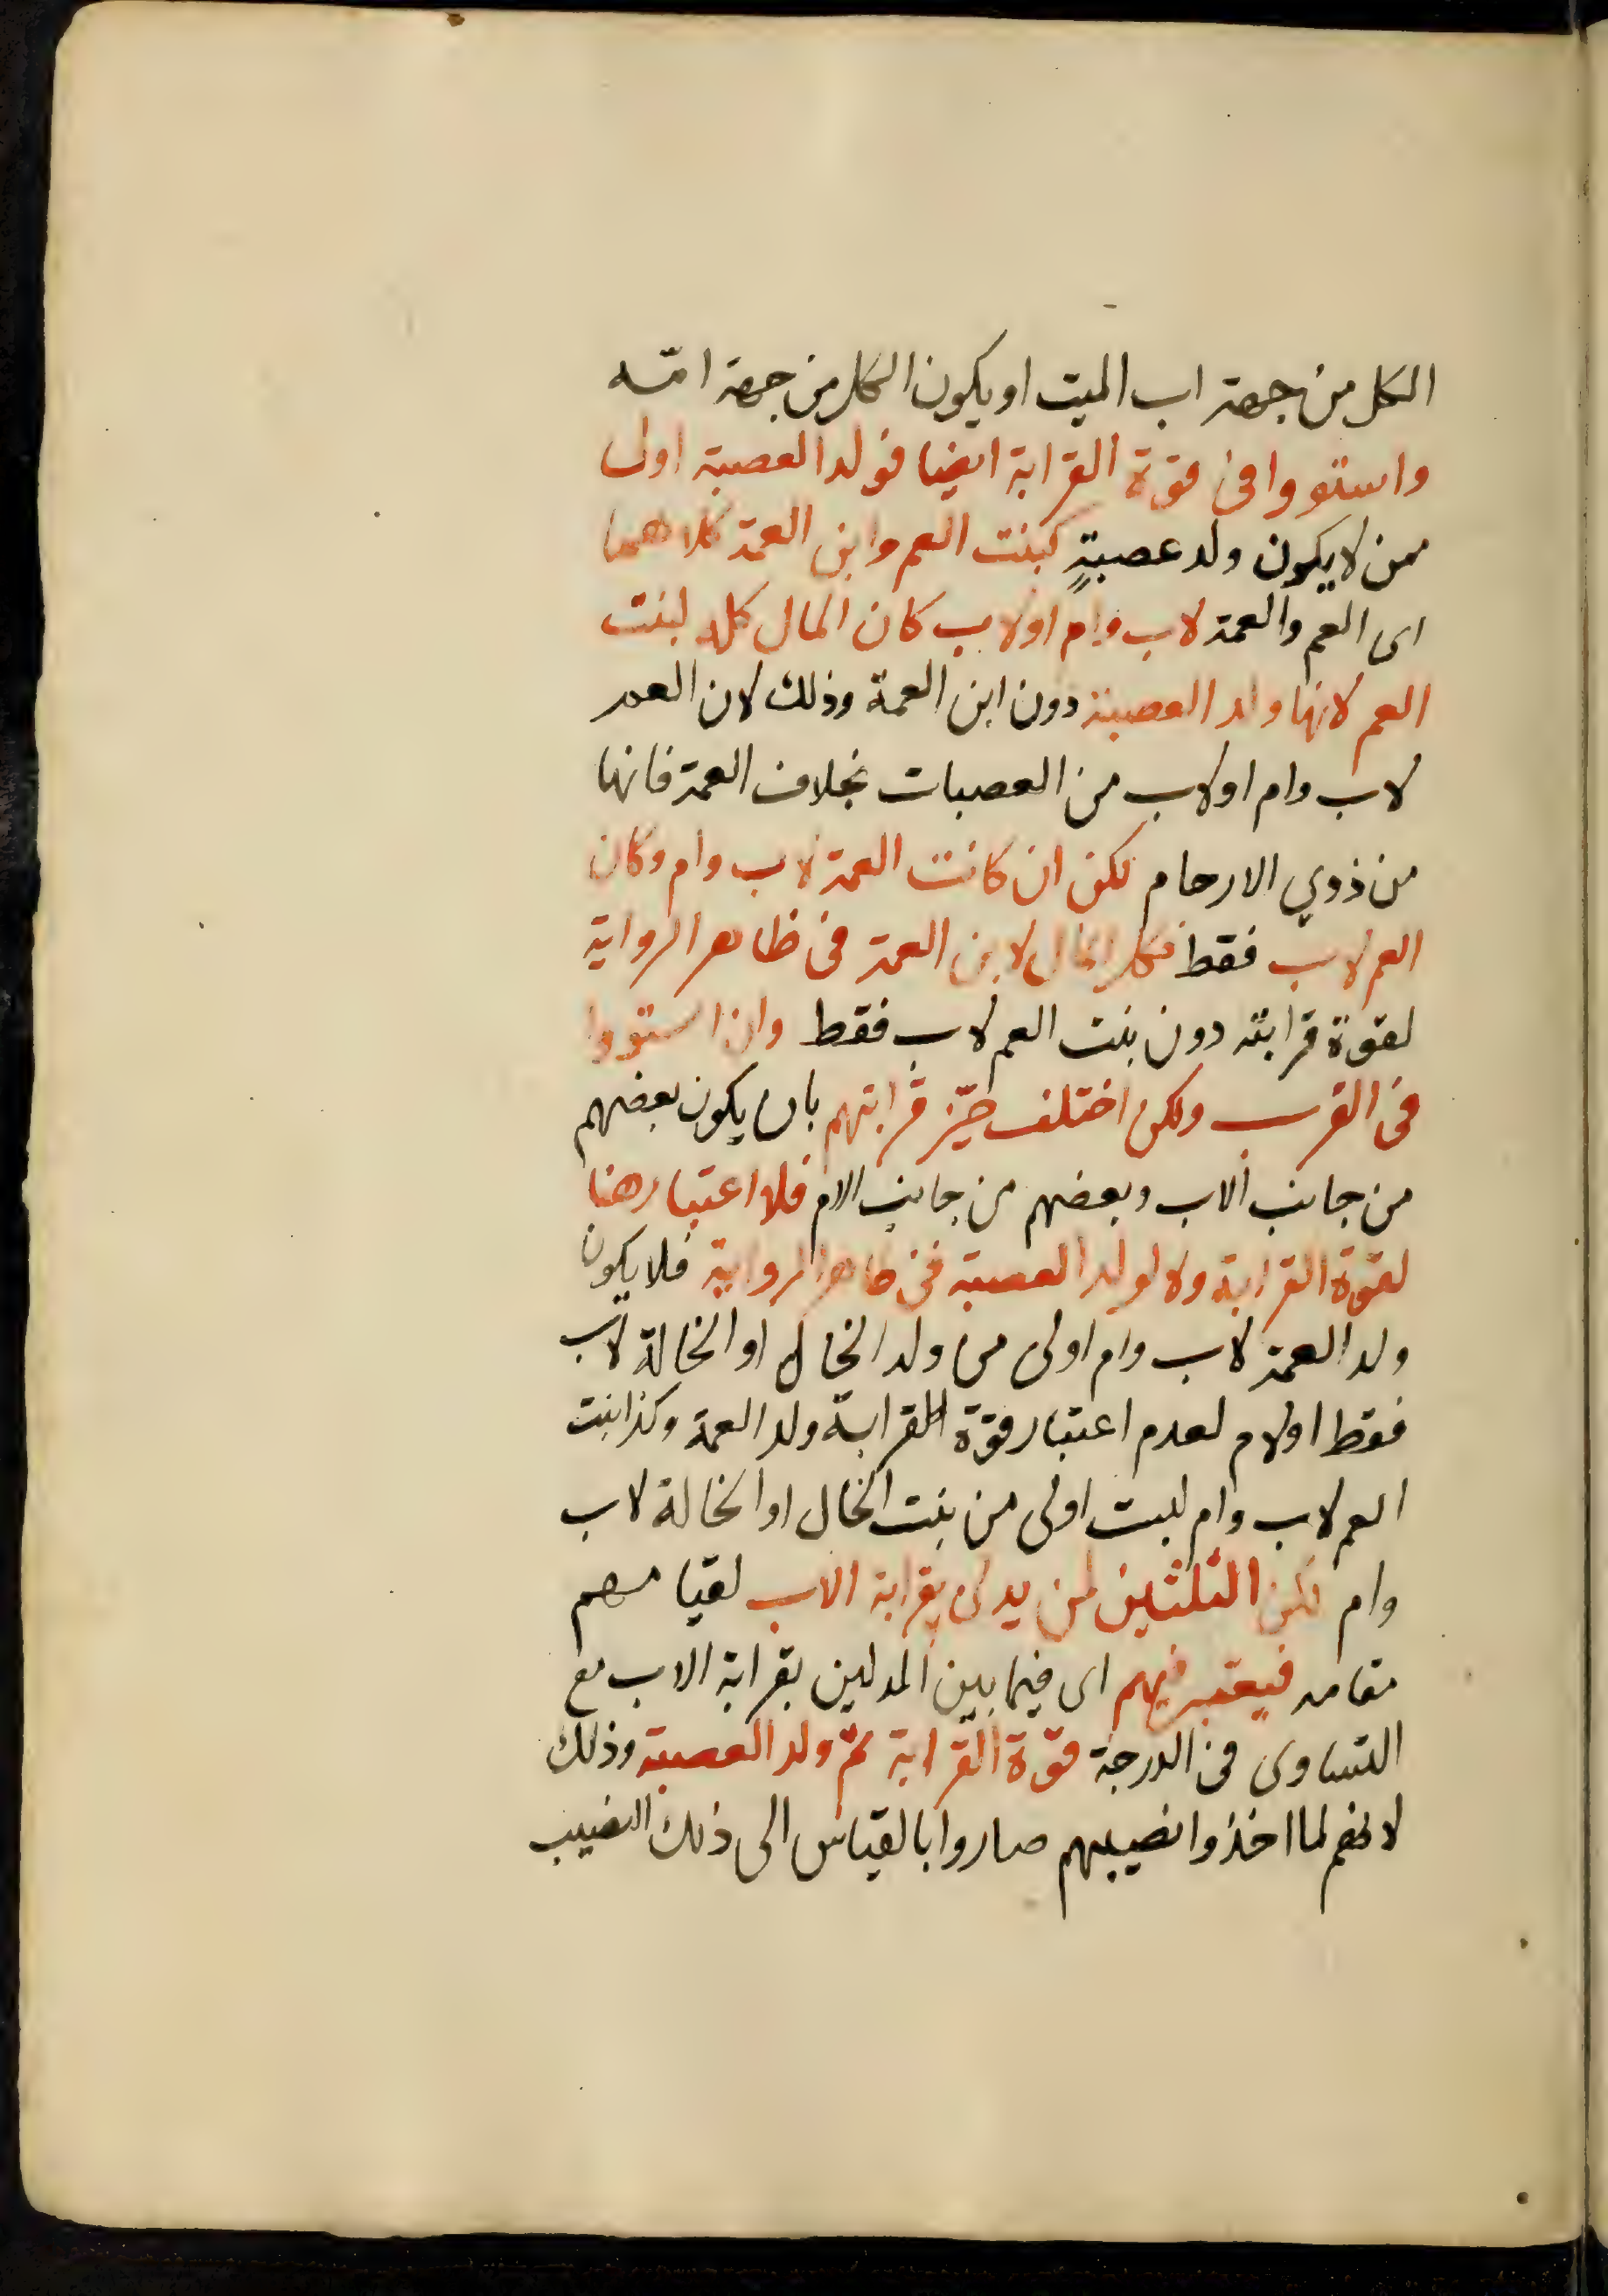 الكل من جهة اب الميت او يكون الكل من جهة امّه
واستووا فى قوّة القرابة ايضا فولد العصبة اولى
ممن لا يكون ولد عصبةٍ كبنت العم وابن العمة كلاهما
اى العم والعمة لاب وام او لاب كان المال كله لبنت
العم لانها ولد العصبة دون ابن العمة وذلك لان العم
لاب وام او لاب من العصبات بخلاف العمة فانها
من ذوي الارحام لكن ان كانت العمة لاب وام وكان
العم لاب فقط فكل المال لابن العمة فى ظاهر الرواية
لقوة قرابته دون بنت العم لاب فقط وان استووا
فى القرب ولكن اختلف حيّز قرابتهم بان يكون بعضهم
من جانب الاب وبعضهم من جانب الام فلا اعتبار هنا
لقوة القرابة ولا لولد العصبة فى ظاهر الرواية فلا يكون
ولد العمة لاب وام اولى من ولد الخال او الخالة لاب
فقط او لام لعدم اعتبار قوّة القرابة ولد العمة وكذا بنت
العم لاب وام ليست اولى من بنت الخال او الخالة لاب
وام لكن الثلثين لمن يدلى بقرابة الاب لقيامهم
مقامه فيعتبر فيهم اى فيما بين المدلين بقرابة الاب مع
التساوى فى الدرجة قوّة القرابة ثم ولد العصبة وذلك
لانهم لما اخذوا نصيبهم صاروا بالقياس الى ذلك النصيب